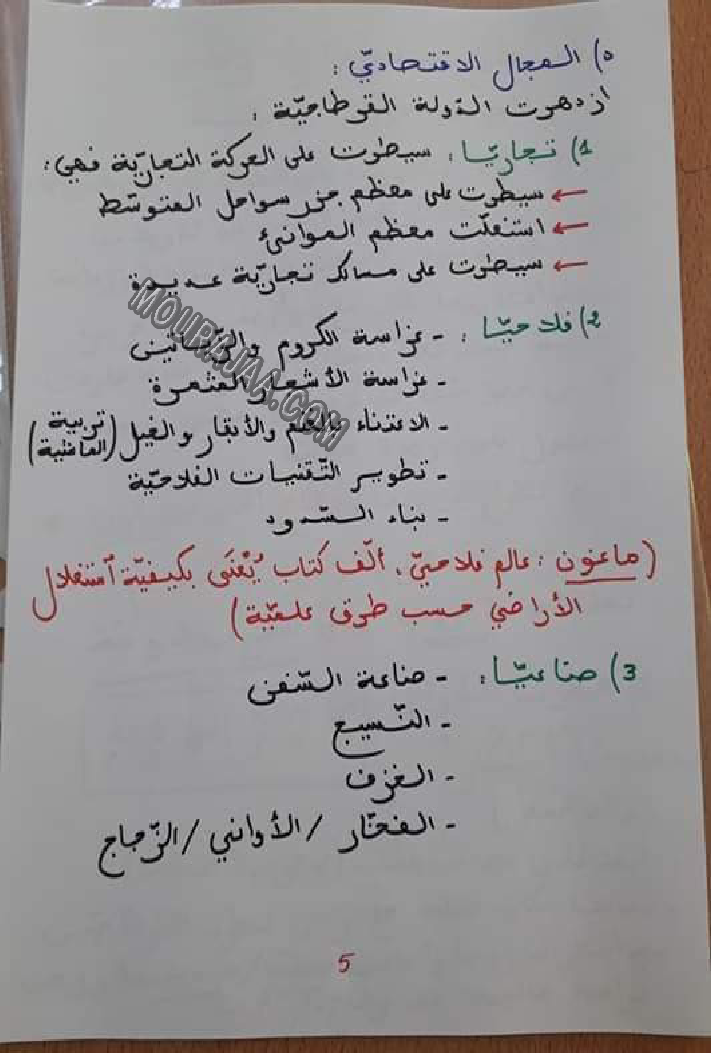 ٥) المجال الاقتصاديّ :
ازدهرت الدّولة القرطاجيّة :
1) تجاريّا : سيطرت على الحركة التجاريّة فهي :
← سيطرت على معظم جزر سواحل المتوسّط
← استغلّت معظم الموانئ
← سيطرت على مسالك تجاريّة عديدة
2) فلاحيّا : - غراسة الكروم والزّياتين
- غراسة الأشجار المثمرة
- الاعتناء بالغنم والأبقار والخيل (تربية الماشية)
- تطوير التّقنيات الفلاحيّة
- بناء السّدود
(ماغون : عالم فلاحيّ . ألّف كتاب يُعْنَى بكيفيّة استغلال
الأراضي حسب طرق علميّة)
3) صناعيّا : - صناعة السّفن
- النّسيج
- الخزف
- الفخّار / الأواني / الزّجاج
5
MOURAJAA.COM